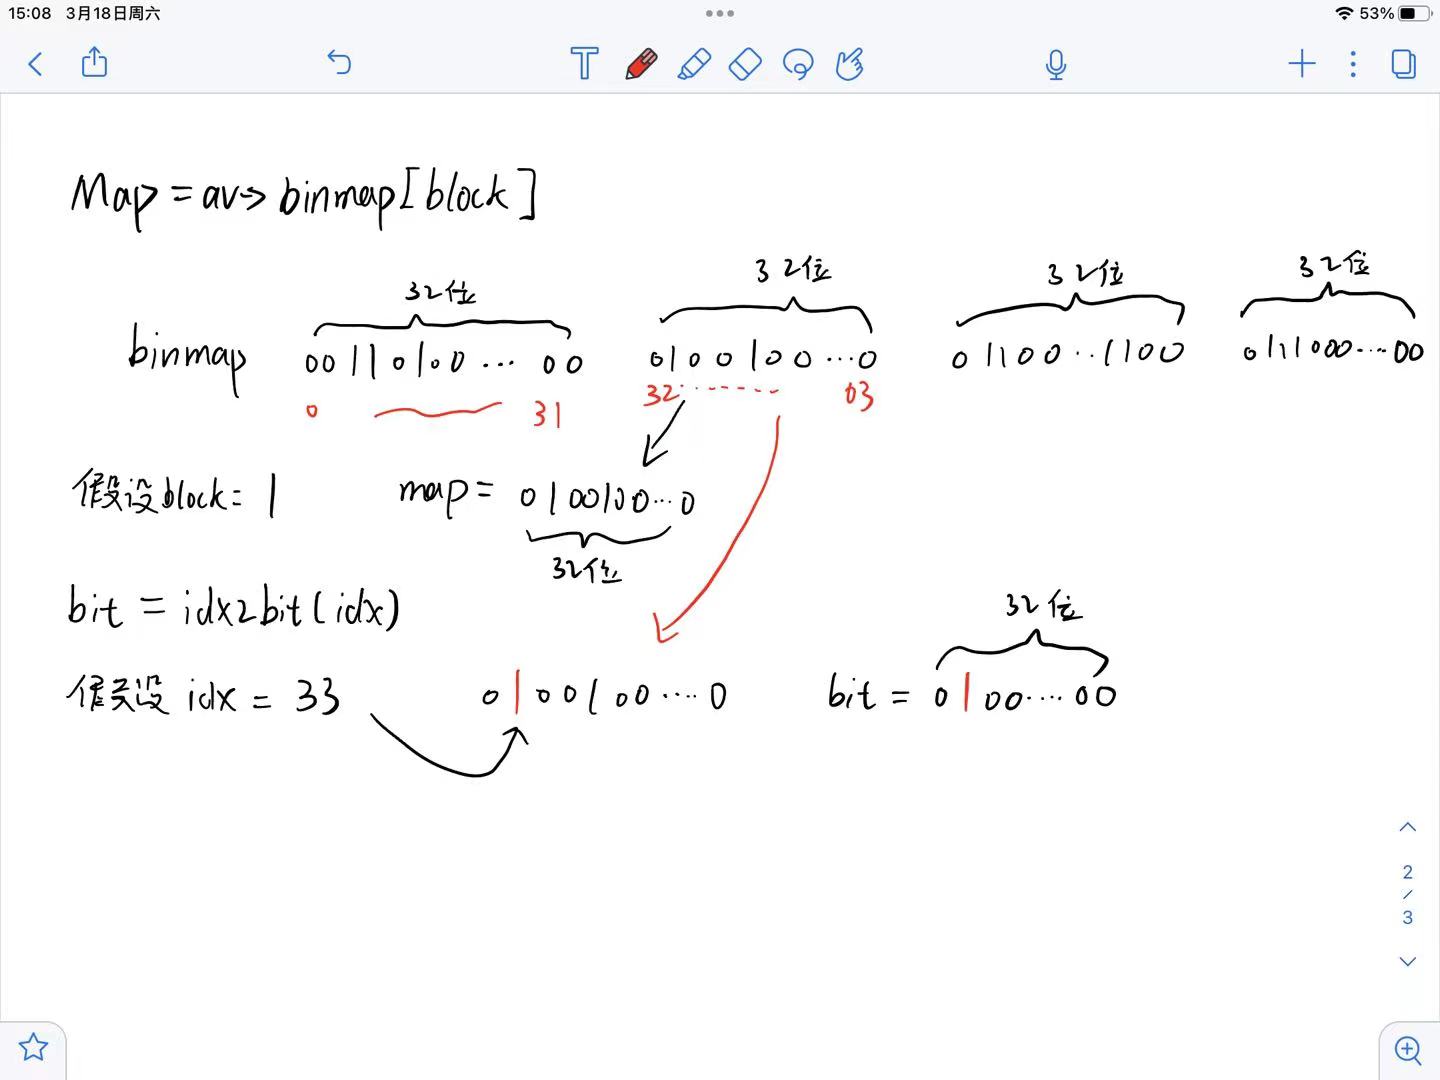 15:08 3月18日周六
53%
T
Map = av→binmap[block]
32位 32位 32位 32位
binmap 001110100...00 0100100...0 01100..1100 0111000....00
0 31 32 03
假设block = 1 map = 0100100...0
32位
bit = idx2bit(idx)
32位
假设 idx = 33 0100100....0 bit = 0100....00
2
/
3